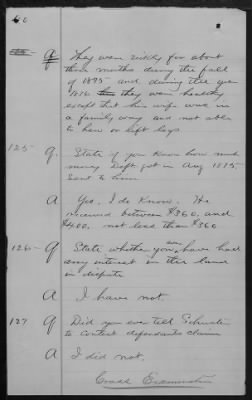 60
A They were sickly for about
three months during the fall
of 1875 and during the year
1876 they were healthy
except that his wife was in
a family way and not able
to hew or lift logs
125 Q. State if you know how much
money Deft got in Aug 1875
sent to him
A Yes, I do know. He
received between $360, and
$400, not less than $360
126 Q State whether you ever have had
any interest in the land
in dispute
A I have not.
127 Q Did you ever tell Schuster
to contest defendants claim
A I did not.
Cross Examination